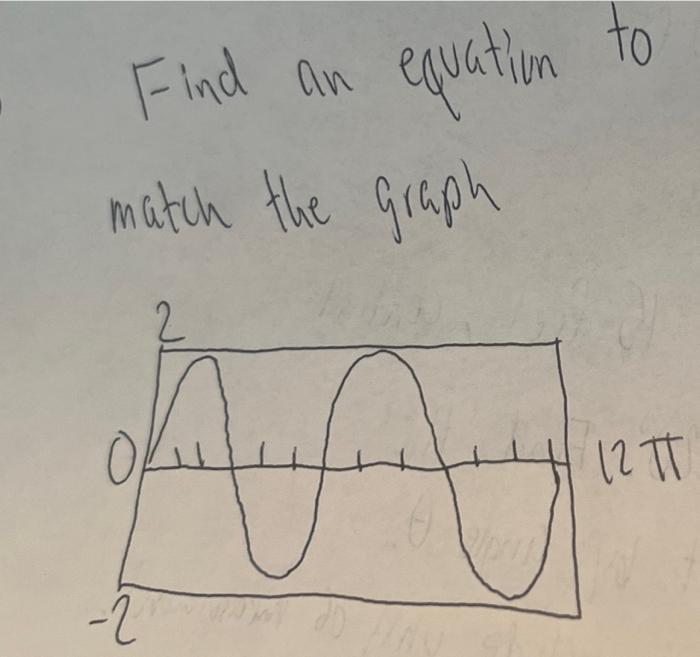 Find an equation to
match the graph
2
0
12 π
-2